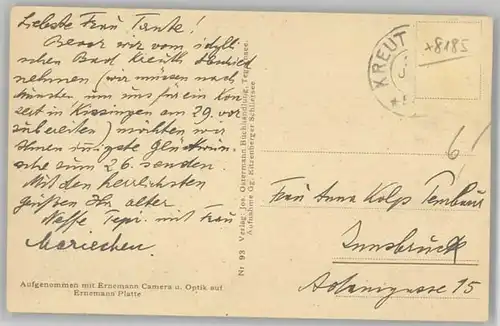 Liebste Frau Tante!
Bevor wir vom idylli-
schen Bad Kreuth Abschied
nehmen (wir müssen nach
Münster, um uns für ein Kon-
zert in Kissingen am 29. vor
zubereiten) möchten wir
Ihnen innigste Glückwün-
sche zum 26. senden.
Mit den herzlichsten
Grüßen Ihr alter
Neffe Tepi. mit Frau
Mariechen.
Aufgenommen mit Ernemann Camera u. Optik auf
Ernemann Platte
Nr 93 Verlag: Jos. Ostermann Buchhandlung, Tegernsee.
Aufnahme Og. Kitzenberger Schliersee
KREUT
x8185
6!
Frau Anna Kolp
Innsbruck
15